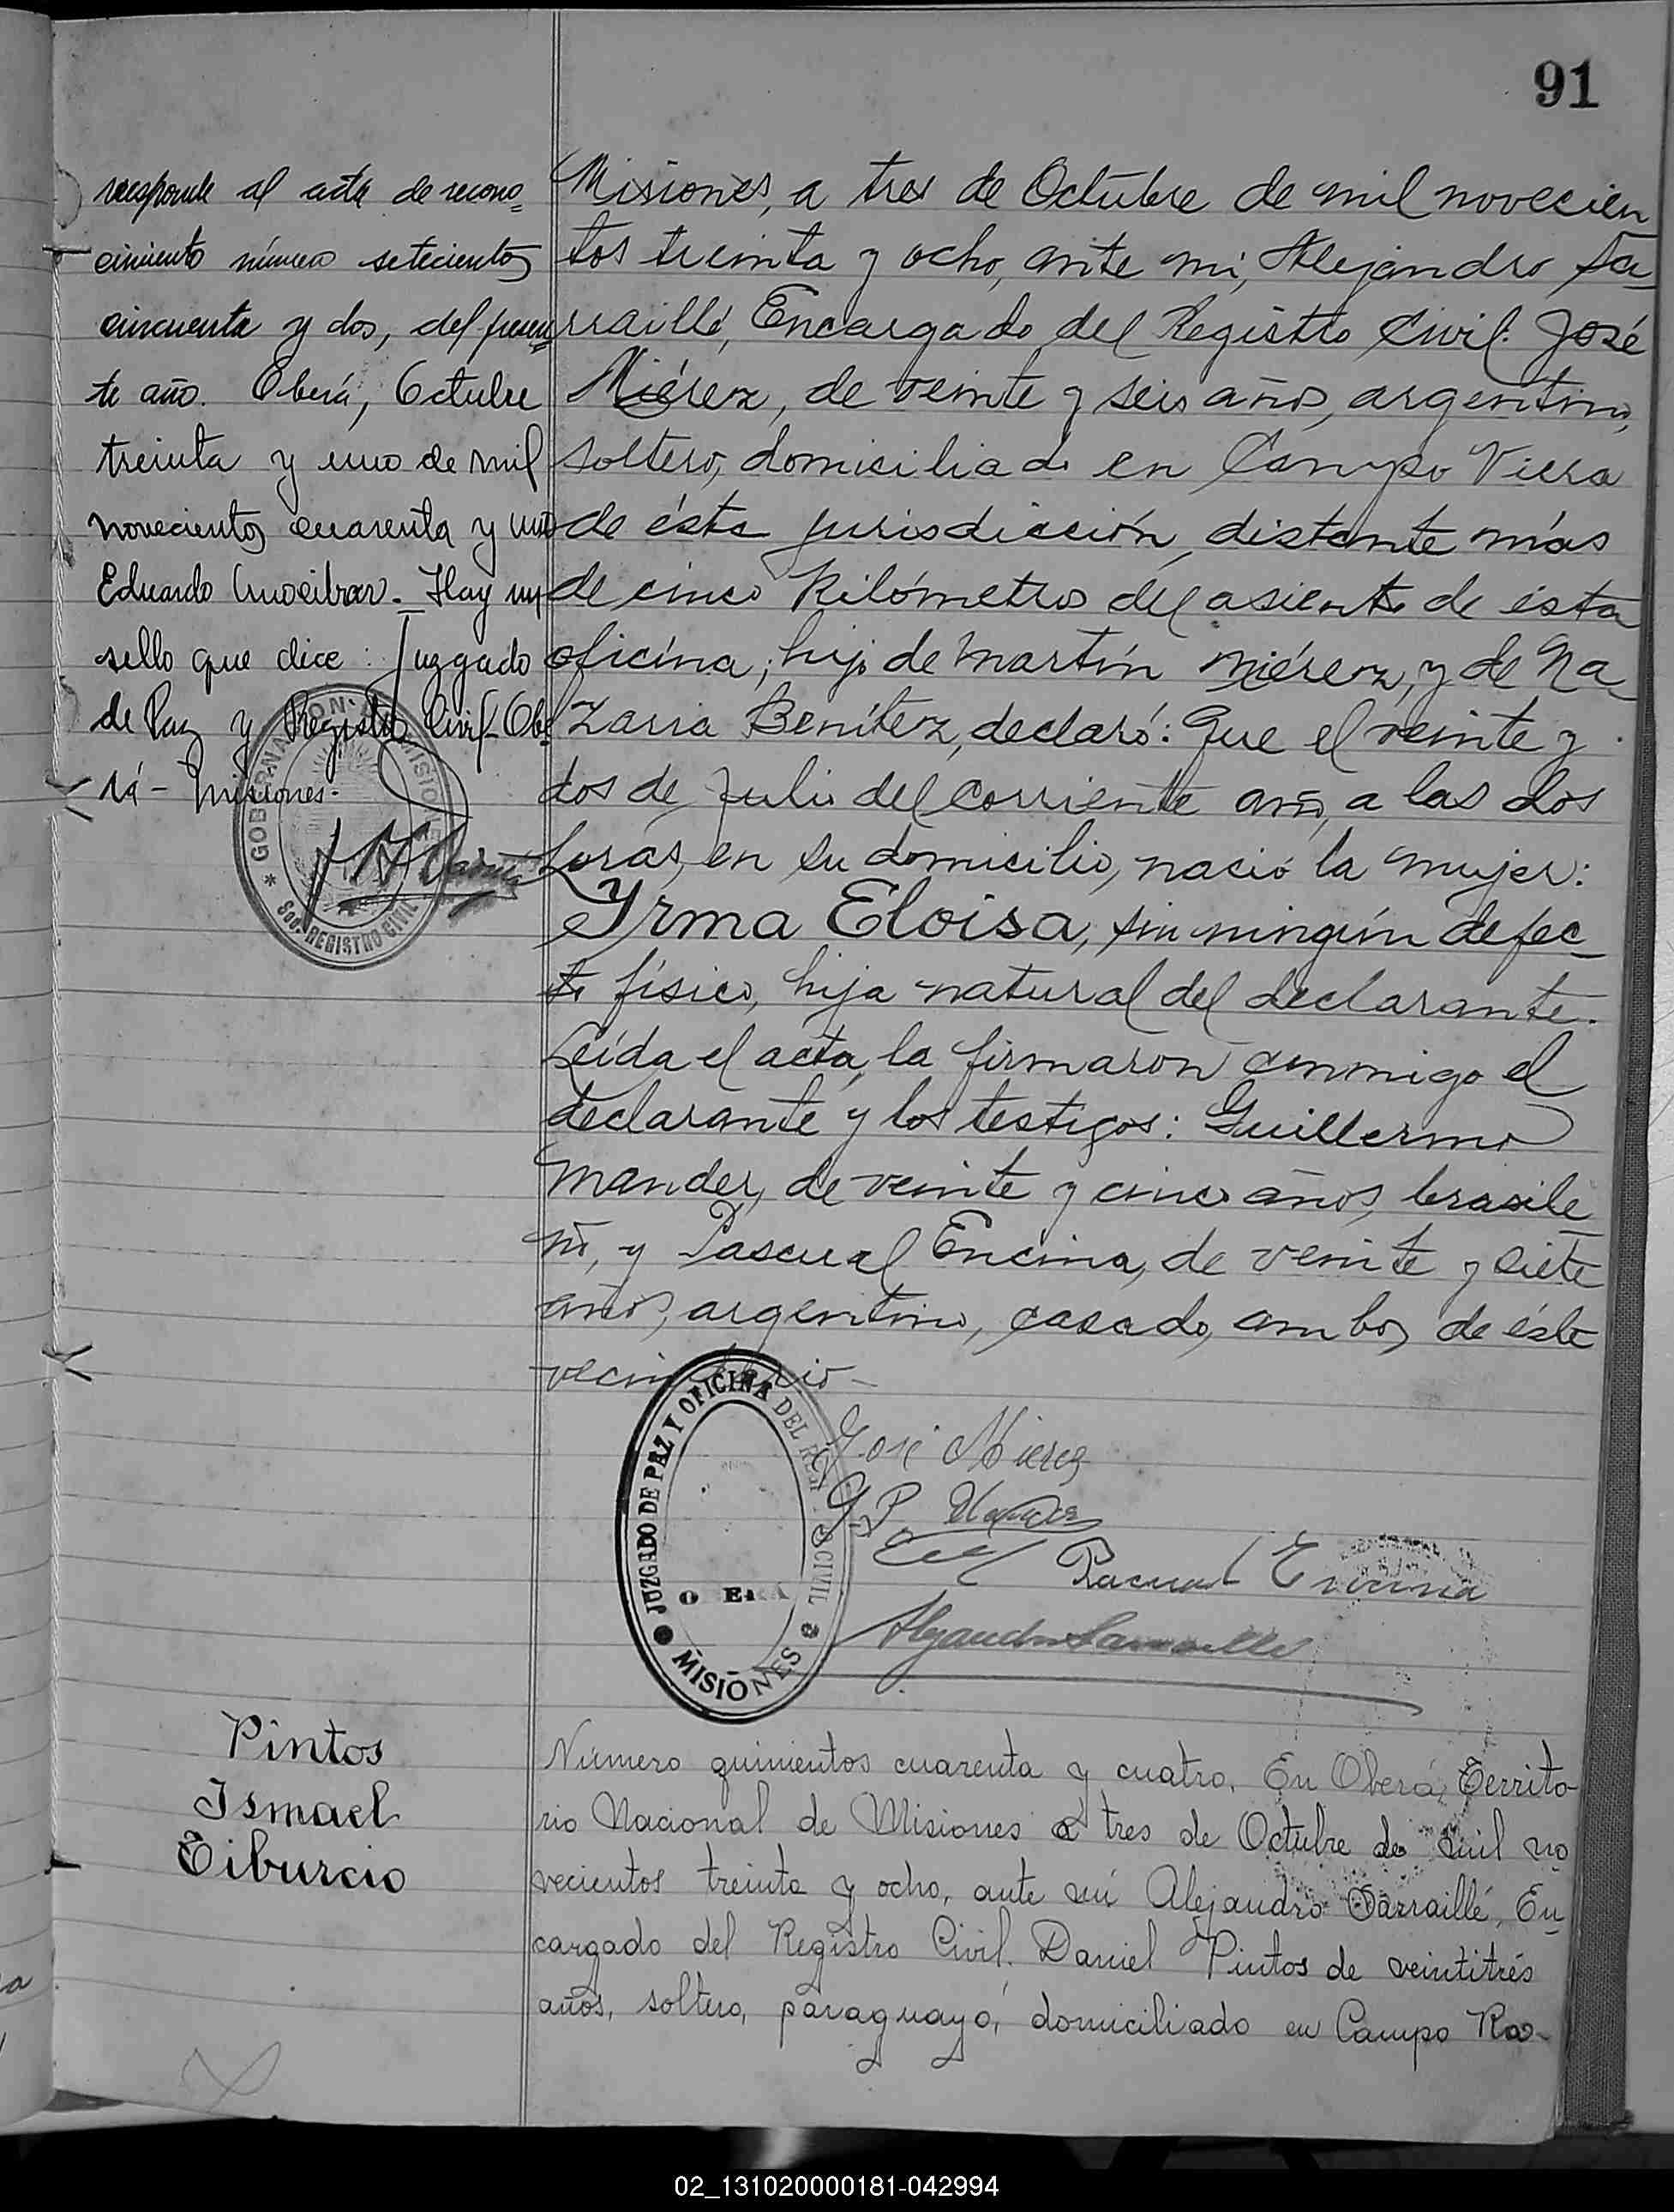 91
rresponde al acta de recono=
cimiento número setecientos
cincuenta y dos, del presen=
te año. Oberá, Octubre
treinta y uno de mil
novecientos cuarenta y uno
Eduardo - Hay un
sello que dice: Juzgado
de Paz y Registro Civil - Obe=
rá - Misiones.-
GOBERNACION MISIONES
Sec. REGISTRO CIVIL
Misiones, a tres de Octubre de mil novecien
tos treinta y ocho, ante mi, Alejandro Sa-
rraillé, Encargado del Registro Civil: José
Miérez, de veinte y seis años, argentino,
soltero, domiciliado en Campo Viera
de ésta jurisdicción, distante más
de cinco kilómetros del asiento de ésta
oficina, hijo de Martín Miérez, y de Na-
zaria Benítez, declaró: Que el veinte y
dos de Julio del corriente año, a las dos
horas, en su domicilio, nació la mujer:
Yrma Eloisa, sin ningún defec-
to físico, hija natural del declarante.
Leída el acta, la firmaron conmigo el
declarante y los testigos: Guillermo
Mander, de veinte y cinco años, brasile-
ño, y Pascual Encina, de veinte y siete
años, argentino, casado, ambos de éste
vecindario-
JUZGADO DE PAZ Y OFICINA DEL REG. CIVIL
OBERÁ
MISIONES
José Mierez
G P Mander
Pascual Encina
Alejandro Sarraillé
Pintos
Ismael
Tiburcio
Número quinientos cuarenta y cuatro. En Oberá, Territo-
rio Nacional de Misiones a tres de Octubre de mil no
vecientos treinta y ocho, ante mí Alejandro Sarraillé, En
cargado del Registro Civil. Daniel Pintos de veintitrés
años, soltero, paraguayo, domiciliado en Campo Ra-
02_131020000181-042994